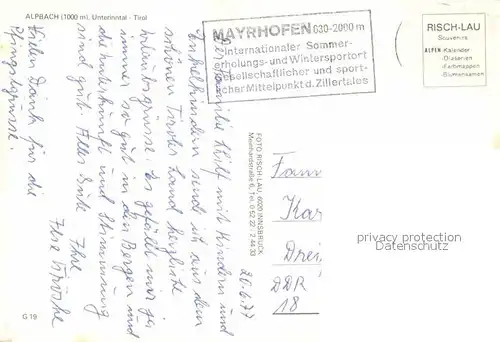 ALPBACH (1000 m), Unterinntal - Tirol
MAYRHOFEN 630-2000 m
Internationaler Sommer-
erholungs- und Wintersportort
Gesellschaftlicher und sport-
licher Mittelpunkt d. Zillertales
RISCH-LAU
Souvenirs
ALPEN-Kalender
-Diaserien
-Farbmappen
-Blumensamen
Familie mit Kindern und
Enkelkindern sende ich aus dem
schönen Tiroler Land herzliche
Urlaubsgrüsse. Es gefällt mir ja
immer so gut in den Bergen und
die Unterkunft und Stimmung
sind gut. Alles Gute Ihre
Vielen Dank für die
Pfingstgrüsse.
FOTO RISCH-LAU, 6020 INNSBRUCK
Meinhardstraße 6, Tel. 0 52 22 - 2 44 33
20.6.77
Fam
Kar
Drei
DDR
18
privacy protection
Datenschutz
G 19